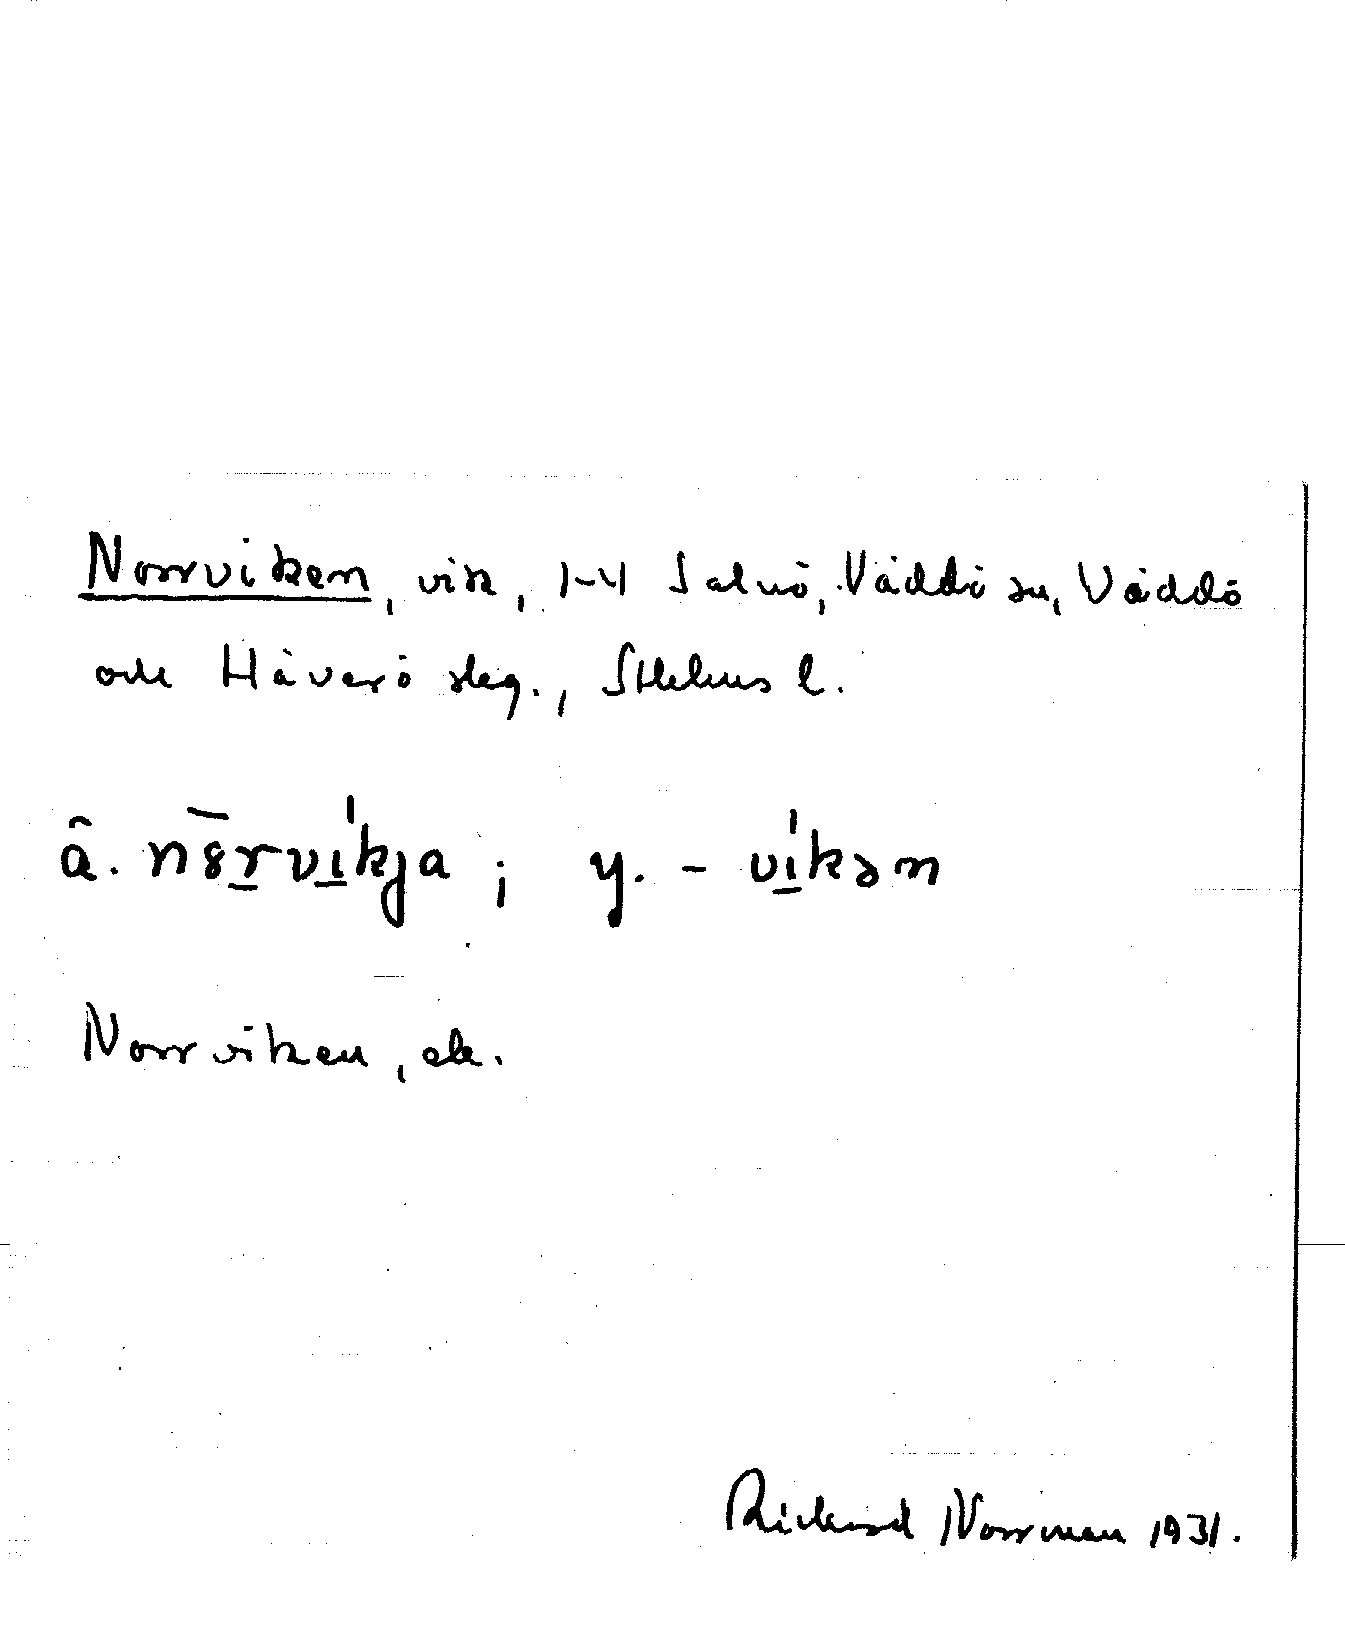 Norrviken, vik, 1-4 Salnö, Väddö sn, Väddö
och Häverö skg., Sthlms l.
ä. nȣ̄rvíkja ; y. - víkən
Norrviken, ek.
Rickard Norrman 1931.